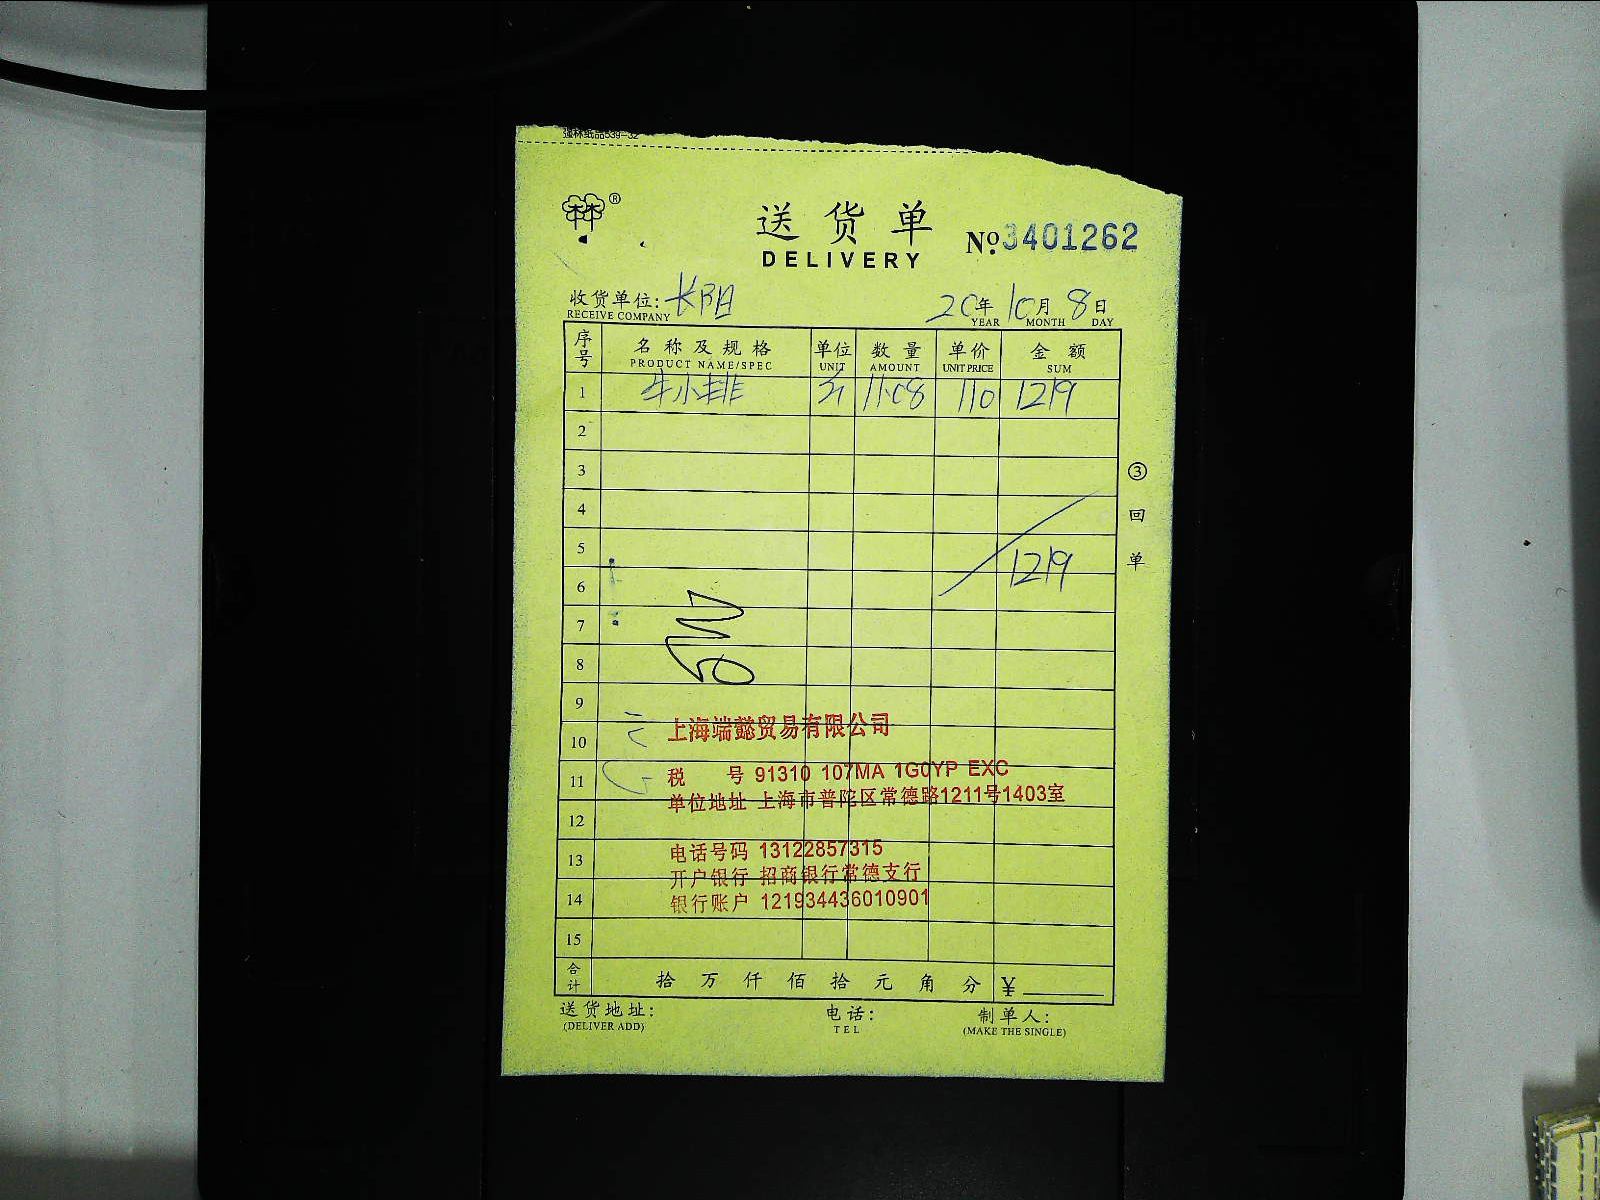 强林纸品539-32
林林®
送货单 №3401262
DELIVERY
收货单位: 20年10月8日
RECEIVE COMPANY YEAR MONTH DAY
序号 名称及规格 单位 数量 单价 金额
PRODUCT NAME/SPEC UNIT AMOUNT UNIT PRICE SUM
1 牛小排 斤 11.08 110 1219
2
3
4
5 1219
6
7
8
9
10
11
12
13
14
15
③回单
上海端懿贸易有限公司
税 号 91310 107MA 1G0YP EXC
单位地址 上海市普陀区常德路1211号1403室
电话号码 13122857315
开户银行 招商银行常德支行
银行账户 121934436010901
合计 拾万仟佰拾元角分 ¥
送货地址: 电话: 制单人:
(DELIVER ADD) TEL (MAKE THE SINGLE)